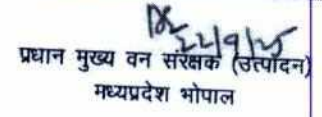 22/9/25
प्रधान मुख्य वन संरक्षक (उत्पादन)
मध्यप्रदेश भोपाल